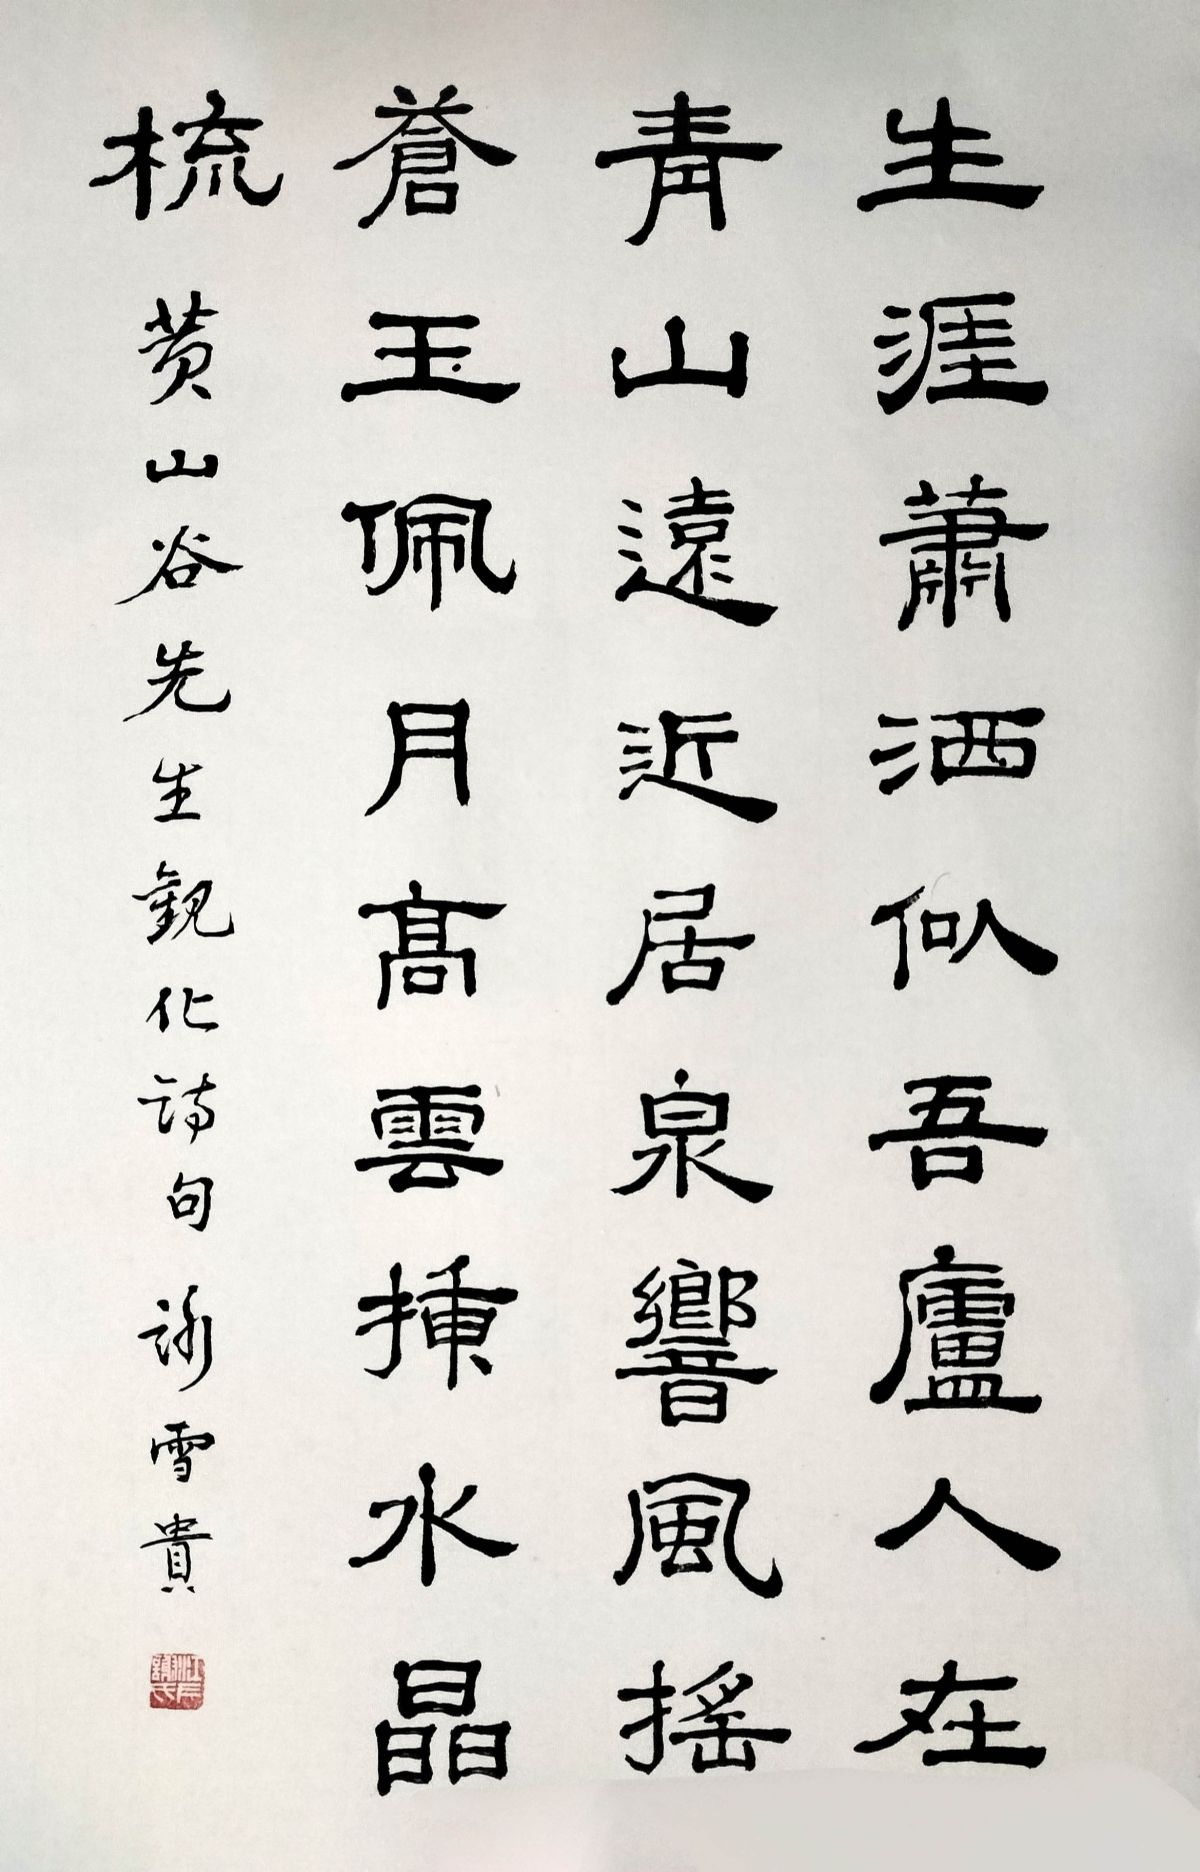 生涯蕭洒似吾廬人在
青山遠近居泉響風搖
蒼玉佩月高雲插水晶
梳
黄山谷先生觀化詩句 詠雪貴